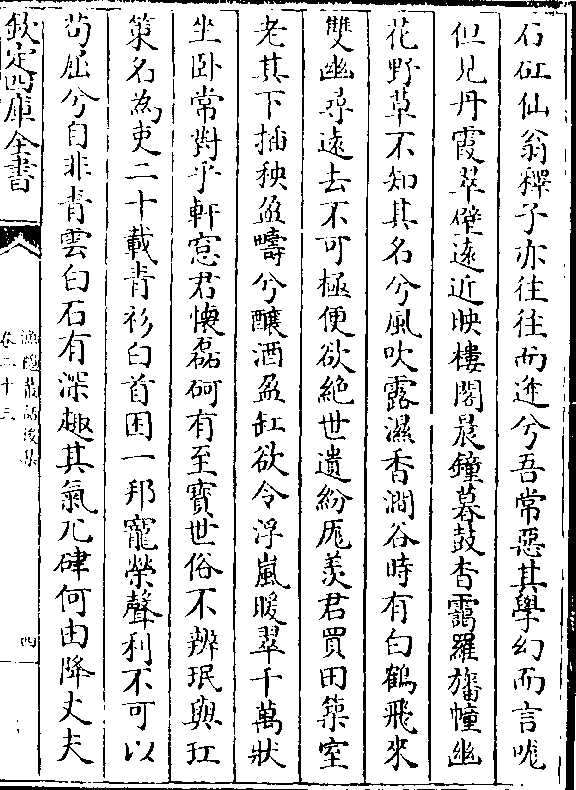 石矼仙翁釋子亦往往而逃兮吾常惡其學幻而言哤
但見丹霞翠壁遠近映樓閣晨鐘暮鼓杳靄羅旛幢幽
花野草不知其名兮風吹露濕香澗谷時有白鶴飛來
雙幽尋遠去不可極便欲絶世遺紛厖羡君買田築室
老其下揷秧盈疇兮釀酒盈缸欲令浮嵐暖翠千萬狀
坐卧常對乎軒窻君懐磊砢有至寳世俗不辨珉與玒
策名為吏二十載青衫白首困一邦寵榮聲利不可以
茍屈兮自非青雲白石有深趣其氣兀硉何由降丈夫
欽定四庫全書
漁隱叢話後集
卷二十三
四